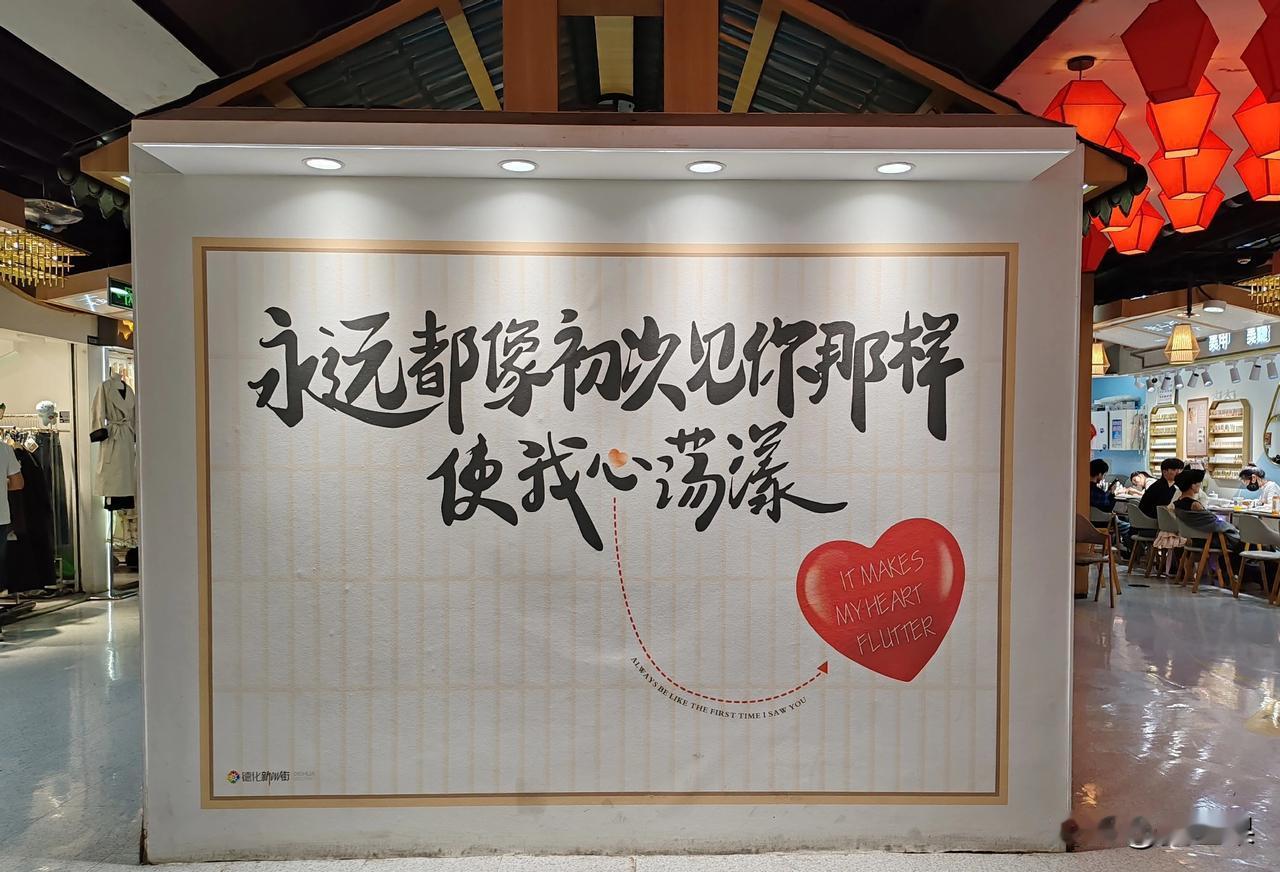 永远都像初次见你那样
使我心荡漾
IT MAKES
MY HEART
FLUTTER
ALWAYS BE LIKE THE FIRST TIME I SAW YOU
德化新街
美甲 美睫